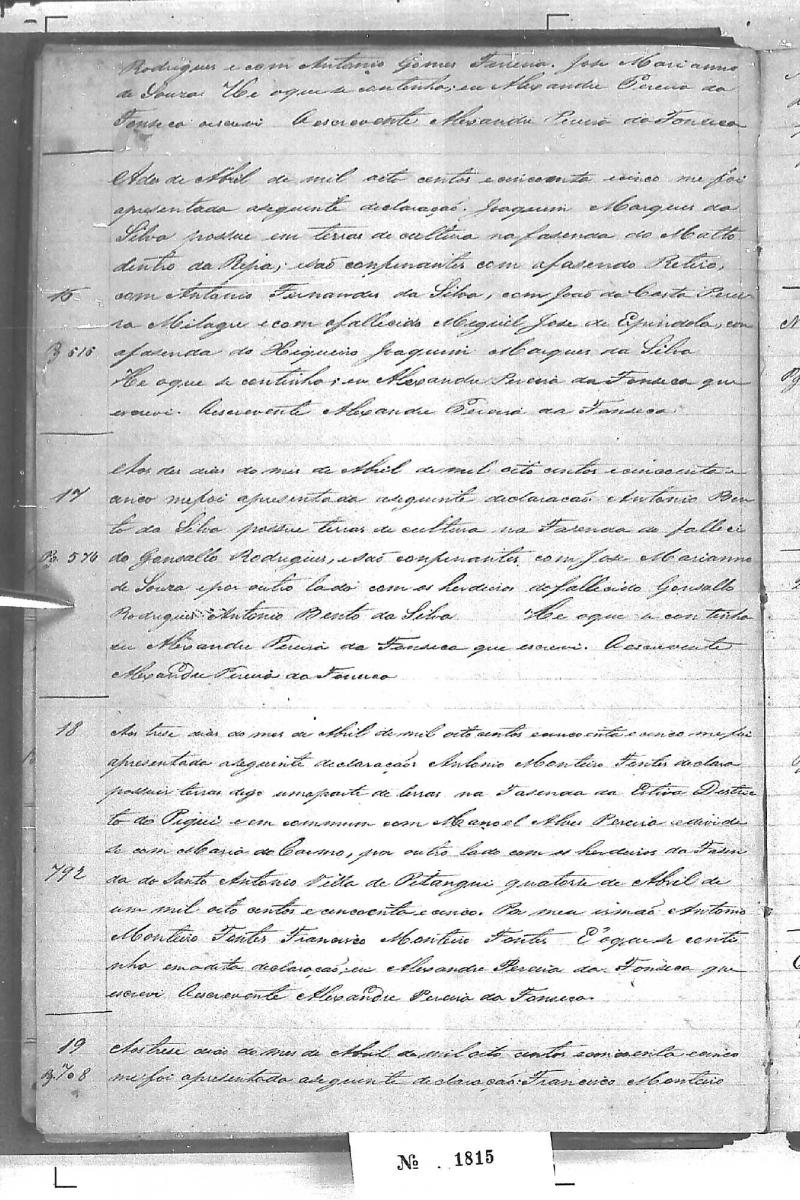 Rodrigues e com Antonio Gomes Ferreira. Jose Marianno
de Souza. He o que se continha; eu Alexandre Pereira da
Fonseca o escrevi O escrevente Alexandre Pereira da Fonseca
A des de Abril de mil oito centos e cincoenta e cinco me foi
apresentada a seguinte declaração. Joaquim Marques da
Silva possue em terras de cultura na fasenda do Matto
dentro da; e são confinantes com a fasenda Retiro,
16 com Antonio Fernandes da Silva, com João da Costa Perei-
ra Milagre e com o fallecido Miguel Jose de Espindola, com
R 515 a fasenda do Joaquim Marques da Silva
He o que se continha; eu Alexandre Pereira da Fonseca que
escrevi. O escrevente Alexandre Pereira da Fonseca
Aos des dias do mes de Abril de mil oito centos e cincoenta e
17 cinco me foi apresentada a seguinte declaração Antonio Ben-
to da Silva possue terras de cultura na Fazenda do falleci
R 576 do Gonsallo Rodrigues, e são confinantes com Jose Marianno
de Souza e por outro lado com os herdeiros do fallecido Gonsallo
Rodrigues Antonio Bento da Silva He o que se continha
eu Alexandre Pereira da Fonseca que escrevi. O escrevente
Alexandre Pereira da Fonseca
18 Aos trese dias do mes de Abril de mil oito centos e cincoenta e cinco me foi
apresentada a seguinte declaração Antonio Monteiro Fontes declara
possuir terras digo uma parte de terras na Fasenda da Estiva Destric
to do Piqui e em commum com Manoel Alves Pereira e divide
se com Maria do Carmo, por outro lado com os herdeiros da Fasen
792 da do Santo Antonio Villa de Pitangui quatorse de Abril de
um mil oito centos e cincoenta e cinco. Por meu irmão Antonio
Monteiro Fontes Francisco Monteiro Fontes E o que se conti
nha em a dita declaração, eu Alexandre Pereira da Fonseca que
escrevi O escrevente Alexandre Pereira da Fonseca.
19 Aos trese dias do mes de Abril de mil oito centos e cincoenta e cinco
R 708 me foi apresentada a seguinte declaração: Francisco Monteiro
Nº 1815